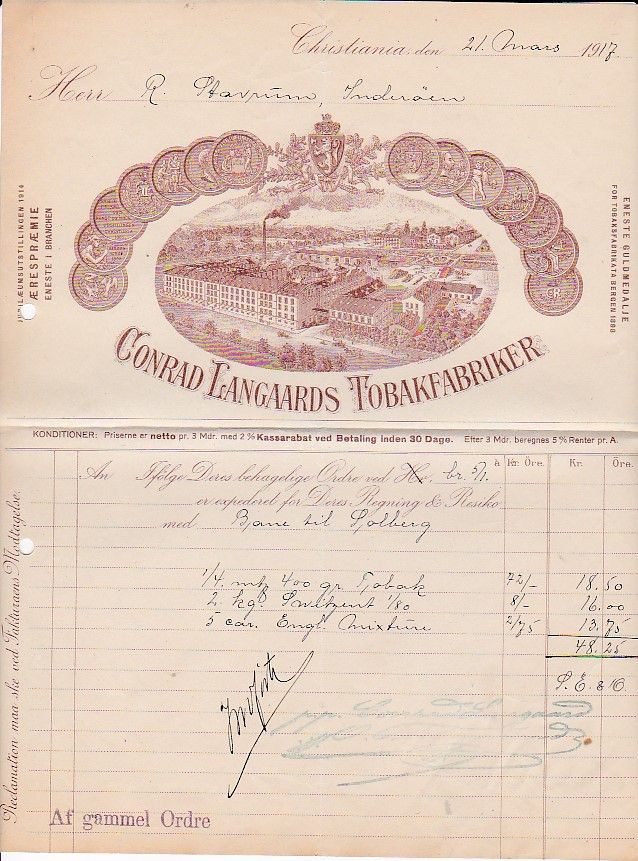 Christiania, den 21. Mars 1917.
Herr R. Stavrum, Inderöen
JUBILÆUMSUTSTILLINGEN 1914
ÆRESPRÆMIE
ENESTE I BRANCHEN
ENESTE GULDMEDALJE
FOR TOBAKSFABRIKATA BERGEN 1898
CONRAD LANGAARDS TOBAKFABRIKER
KONDITIONER: Priserne er netto pr. 3 Mdr. med 2 % Kassarabat ved Betaling inden 30 Dage. Efter 3 Mdr. beregnes 5 % Renter pr. A.
à Kr. Øre. Kr. Øre.
An Ifölge Deres behagelige Ordre ved Hr. br. 5/1.
er expederet for Deres Regning & Resiko
med Bane til Sjolberg
1/4. 400 gr. Tjobak 72/- 18.50
2 kg. 1/80 8/- 16.00
5 car. Engl. Mixture 2/75 13.75
48.25
S. E. & O.
Reclamation maa ske ved Fakturaens Modtagelse.
Af gammel Ordre